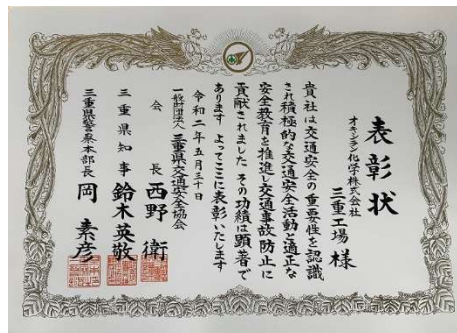 表彰状
オキシラン化学株式会社
三重工場 様
貴社は交通安全の重要性を認識
され積極的な交通安全活動と適正な
安全教育を推進し交通事故防止に
貢献されました その功績は顕著で
あります よってここに表彰いたします
令和二年五月三十日
一般財団法人 三重県交通安全協会
会長 西野 衛
三重県知事 鈴木英敬
三重県警察本部長 岡 素彦